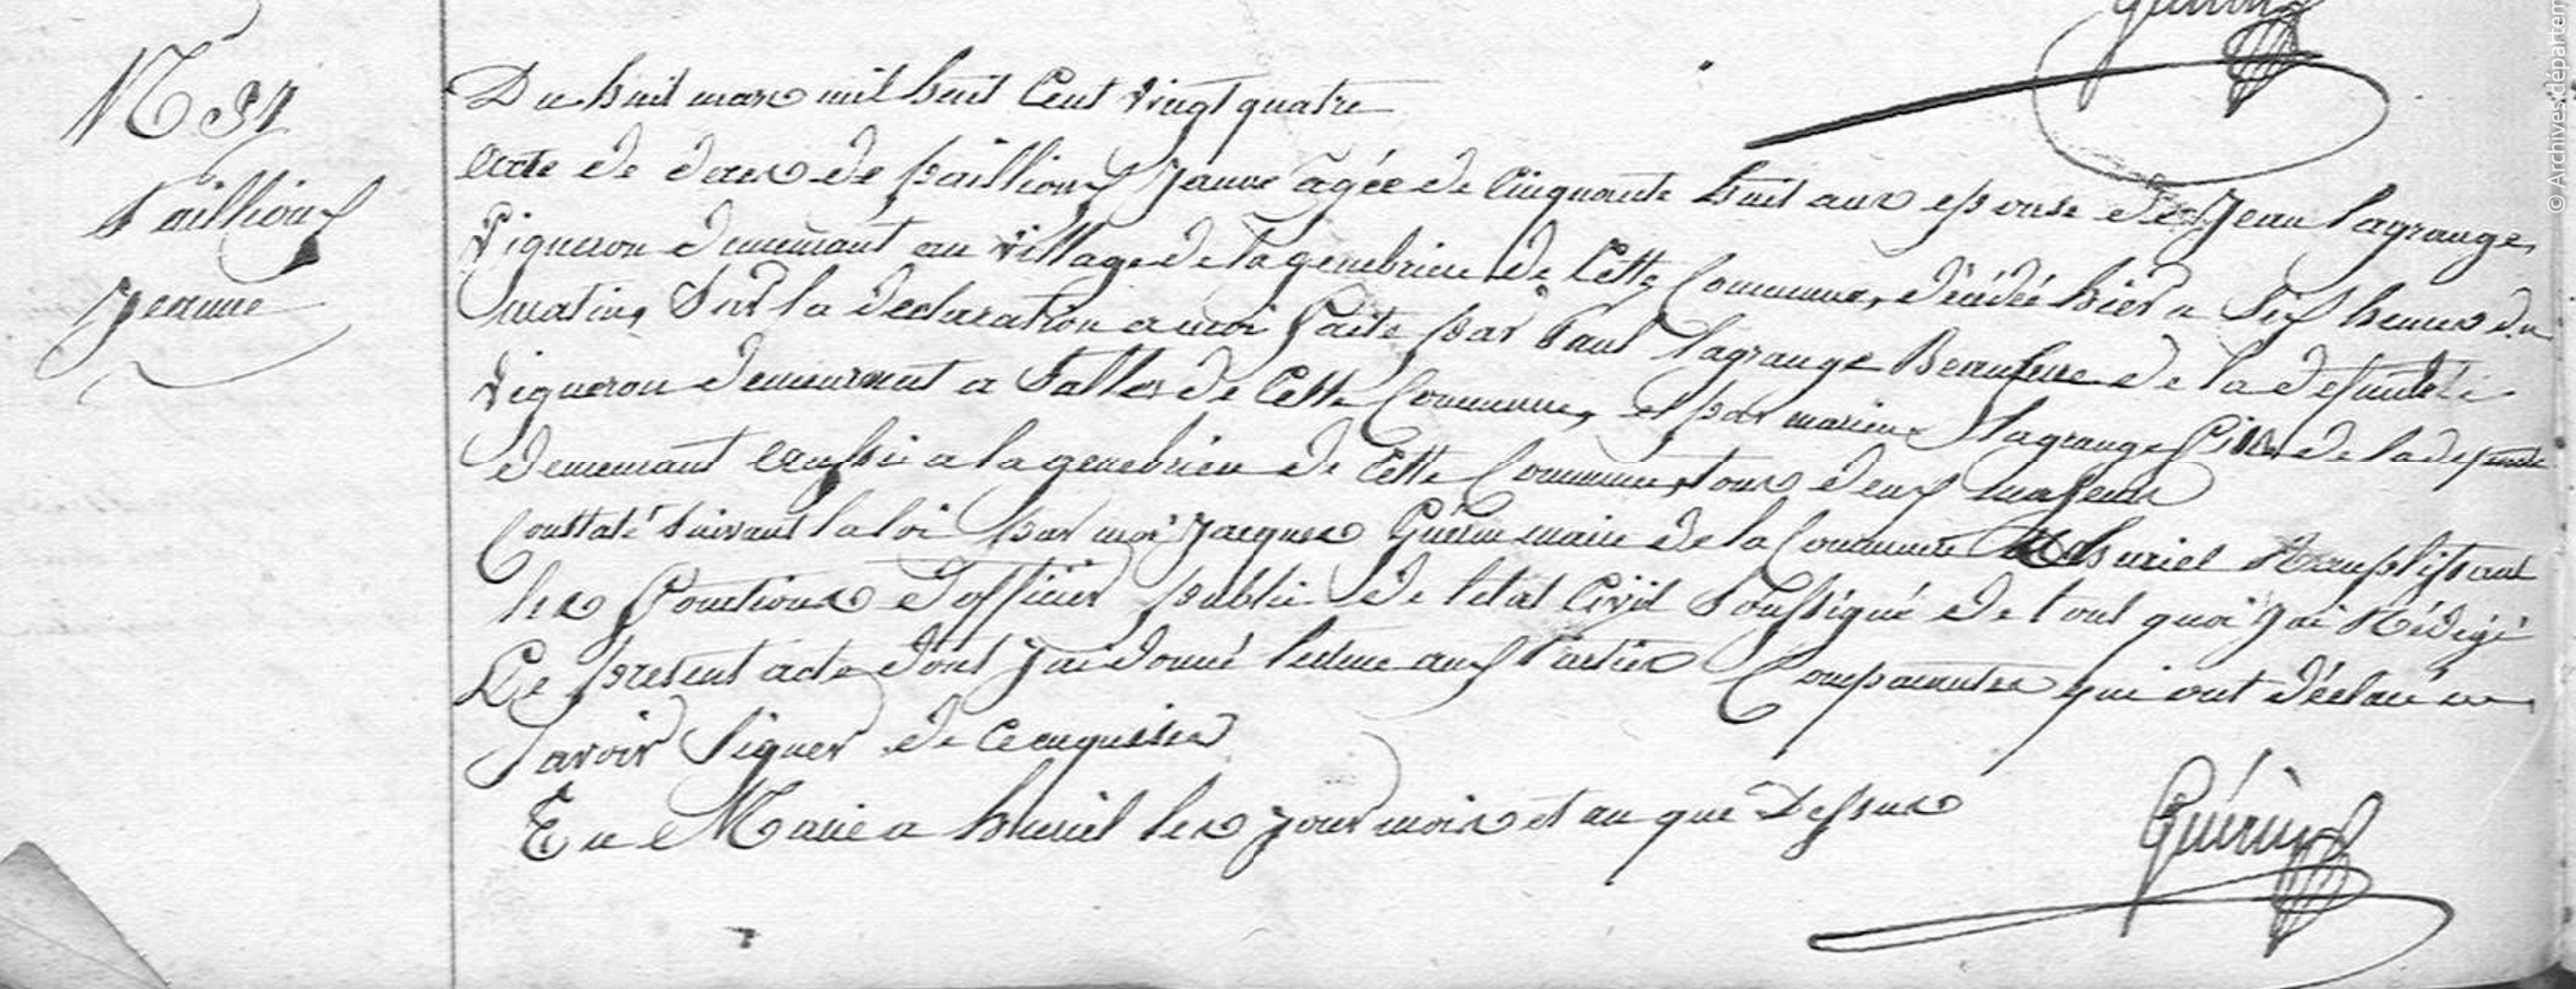 N° 31
Pailloux
Jeanne
Du huit mars mil huit Cent Vingt quatre
acte de deces de pailloux Jeanne agée de Cinquante huit ans epouse de Jean lagrange
Vigneron demeurant au Village de la genebrieu de Cette Commune, décédée hier a Six heures du
matin, Sur la declaration a moi faite par Paul lagrange Beaufrere de la defunte
Vigneron demeurant a de Cette Commune, et par lagrange fils de la defunte
demeurant aussi a la genebrieu de Cette Commune, tous deux majeurs
Constaté suivant la loi par moi Jacques Guérin maire de la Commune d'huriel Remplissant
les fonctions d'officier public de l'etat Civil Soussigné de tout quoi J'ai Rédigé
Le present acte dont J'ai donné lecture aux Parties Comparantes qui ont déclaré ne
Savoir Signer de ce enquises
En Mairie a huriel les jour mois et an que Dessus
Guérin
© Archives départem